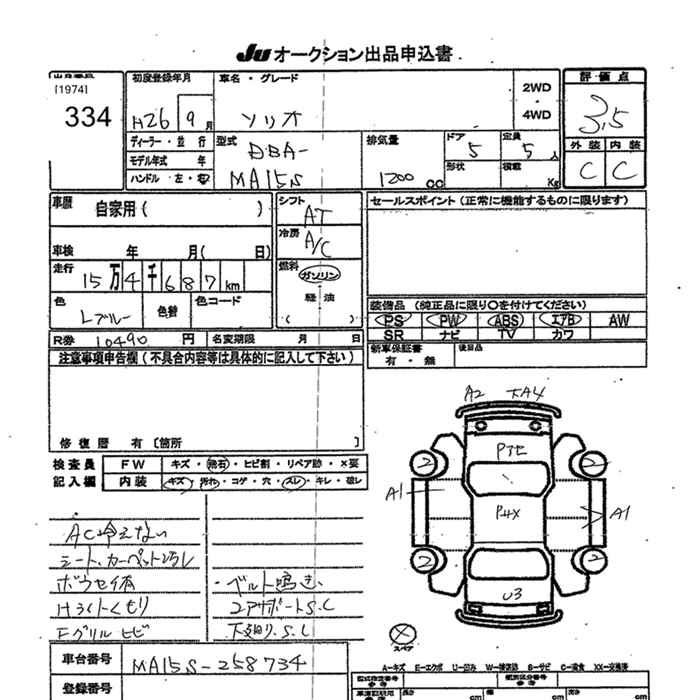 JU オークション出品申込書
[1974]
334
初度登録年月 車名・グレード 2WD・4WD 評価点
H26 9月 ソリオ 3.5
ディーラー・並行 型式 排気量 ドア 定員 外装 内装
モデル年式 年 DBA- 5 5人 C C
ハンドル 左・右 MA15S 1200 cc 形状 積載 Kg
車歴 自家用( ) シフト AT セールスポイント(正常に機能するものに限ります)
冷房 A/C
車検 年 月( 日)
走行 15万4千687km 燃料 ガソリン
軽油
( )
色 Lブルー 色替 色コード
装備品(純正品に限り○を付けてください)
PS PW ABS エアB AW
SR ナビ TV カワ
R券 10490円 名変期限 月 日 新車保証書 後日品
有・無
注意事項申告欄(不具合内容等は具体的に記入して下さい)
修復歴 有[箇所 ]
検査員 FW キズ・飛石・ヒビ割・リペア跡・×要
記入欄 内装 キズ・汚れ・コゲ・穴・スレ・キレ・破レ
A2 XA4
2 2
A1 A1
2 2
U3
スペア
AC冷えない
シート、カーペット
ベルト鳴き、
Hライトくもり
Fグリル ヒビ
下廻り.S.C
車台番号 MA15S-258734
登録番号
A-キズ E-エクボ U-凹み W-補修跡 S-サビ C-腐食 XX-交換済
長さ cm 幅 cm 高さ cm